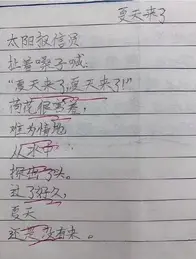 夏天来了
太阳敲信员
扯着嗓子喊:
“夏天来了,夏天来了!”
荷花很害羞,
难为情地
从水中
探出了头。
过了好久,
夏天
还是